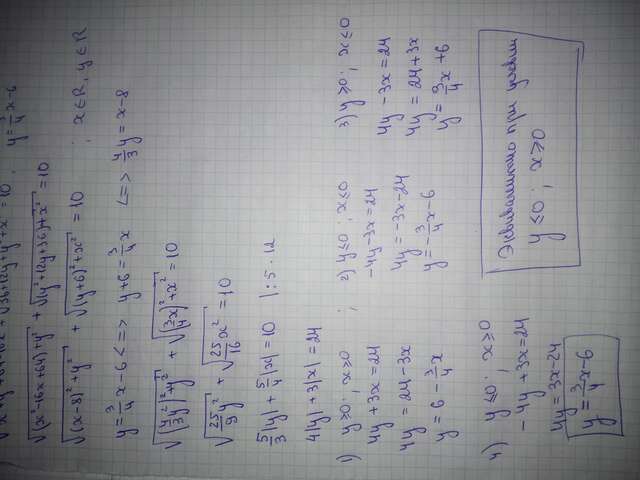 √x²+y²+64-16x + √36+12y+y²+x² = 10 ; y = 3/4 x-6
√(x²-16x+64)+y² + √(y²+12y+36)+x² = 10
√(x-8)²+y² + √(y+6)²+x² = 10 ; x∈R, y∈R
y = 3/4 x-6 <=> y+6 = 3/4 x <=> 4/3 y = x-8
√(4/3 y)²+y² + √(3/4 x)²+x² = 10
√25/9 y² + √25/16 x² = 10
5/3 |y| + 5/4 |x| = 10 | :5 · 12
4|y| + 3|x| = 24
1) y≥0 ; x≥0 ;
4y+3x=24
4y = 24-3x
y = 6 - 3/4 x
2) y≤0 ; x≤0
-4y-3x=24
4y = -3x-24
y = -3/4 x-6
3) y≥0 ; x≤0
4y-3x=24
4y = 24+3x
y = 3/4 x+6
4) y≤0 ; x≥0
-4y+3x=24
4y = 3x-24
y = 3/4 x-6
Эквивалентно при условии
y≤0 ; x≥0